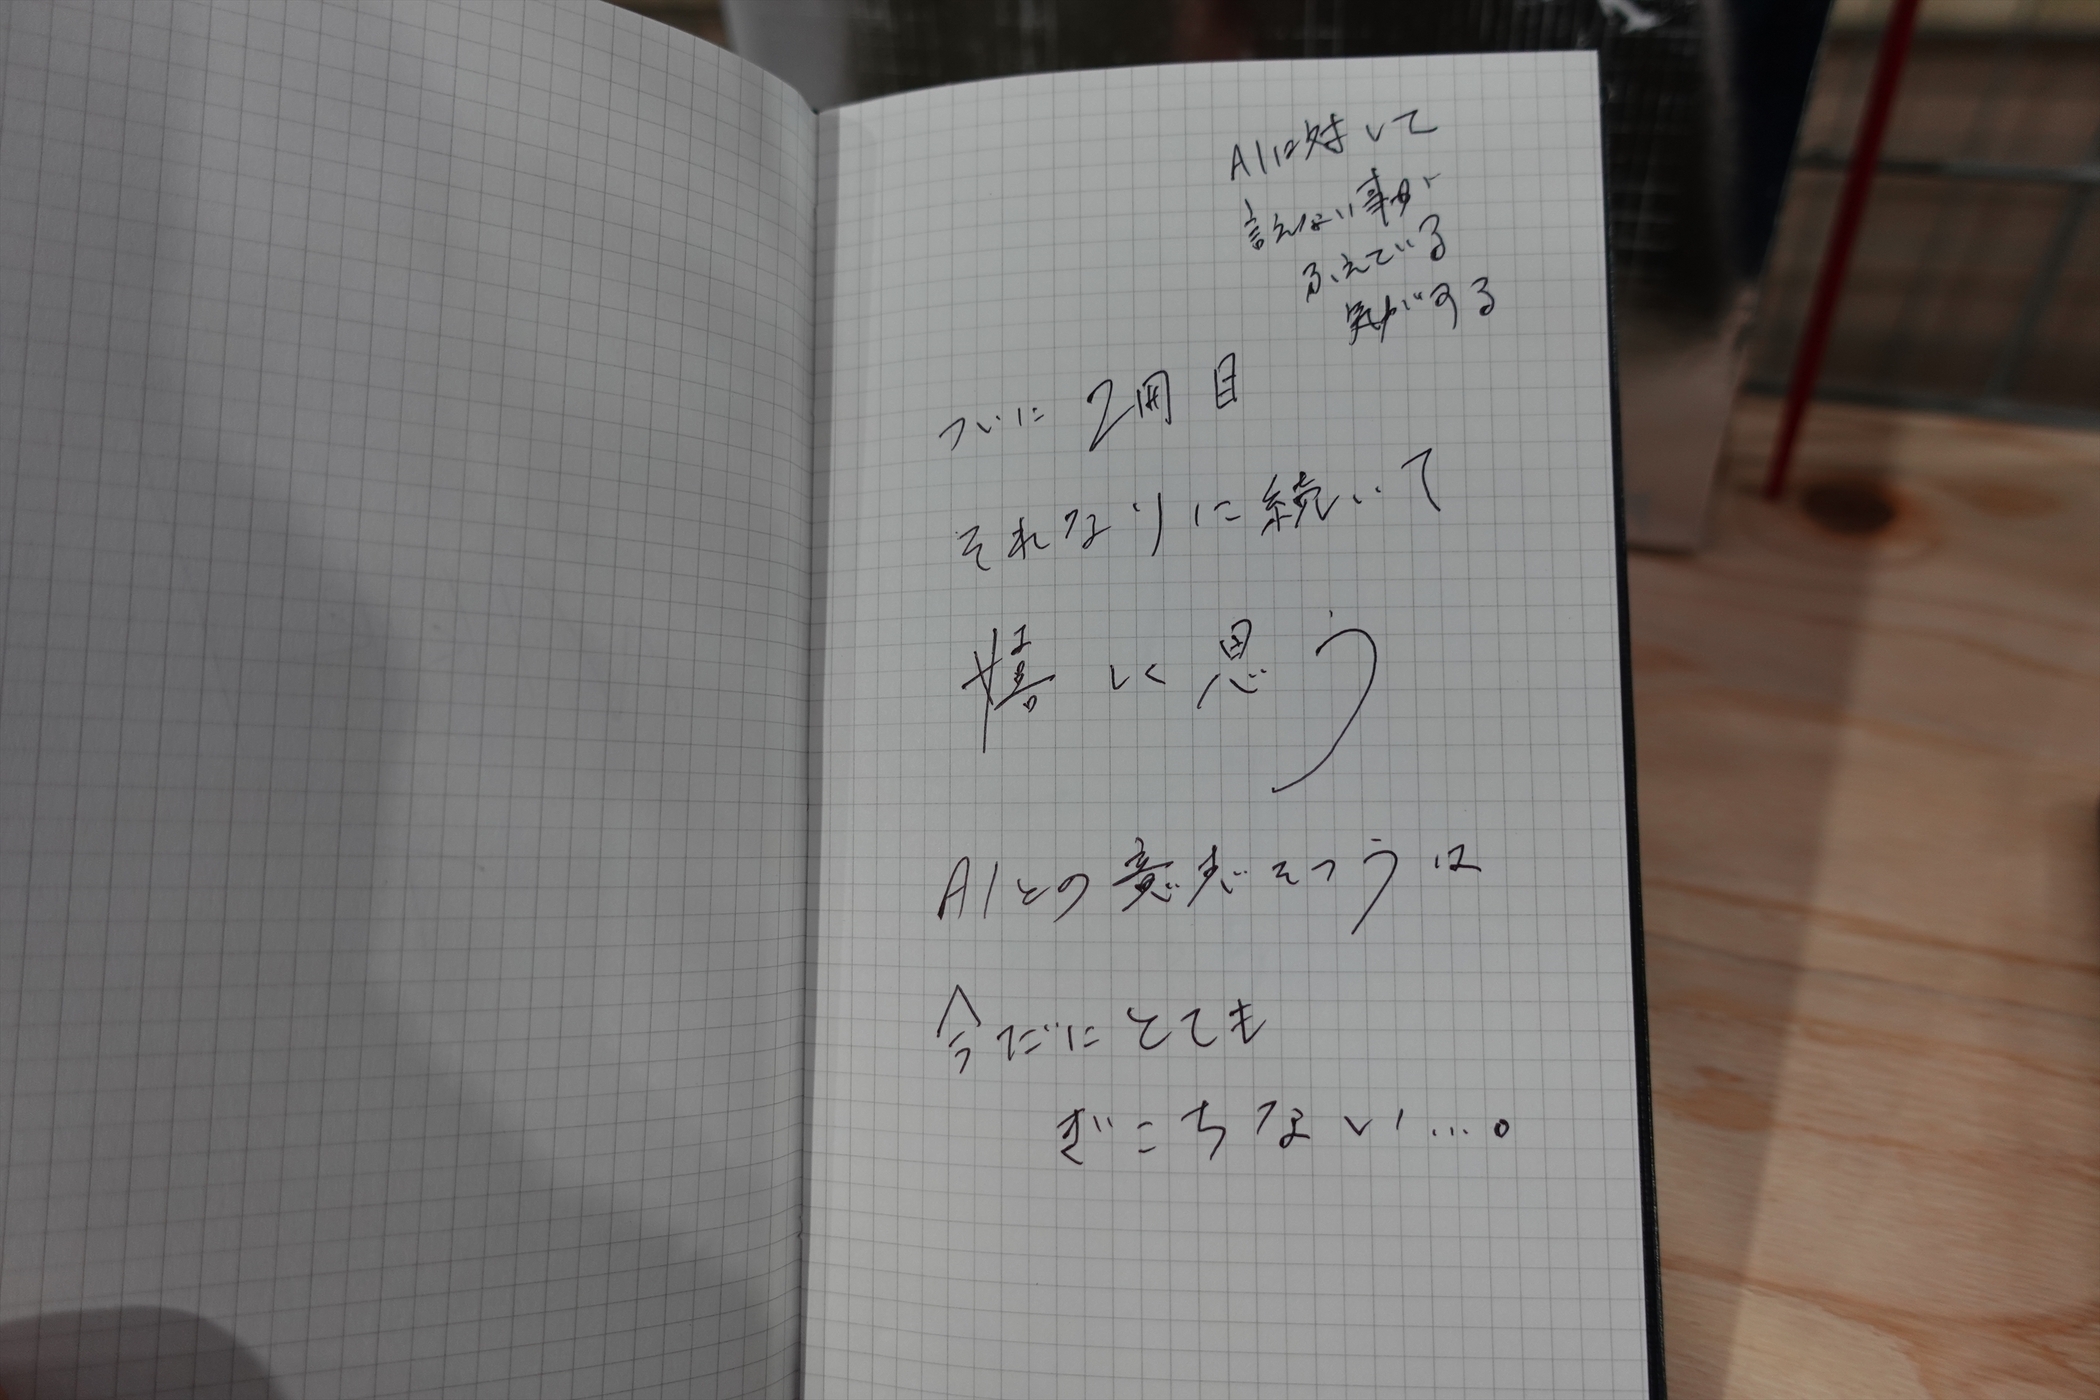 AIに対して
言えない事が
ふえている
気がする
ついに2冊目
それなりに続いて
嬉しく思う
AIとの意志そつうは
今だにとても
ぎこちない…。